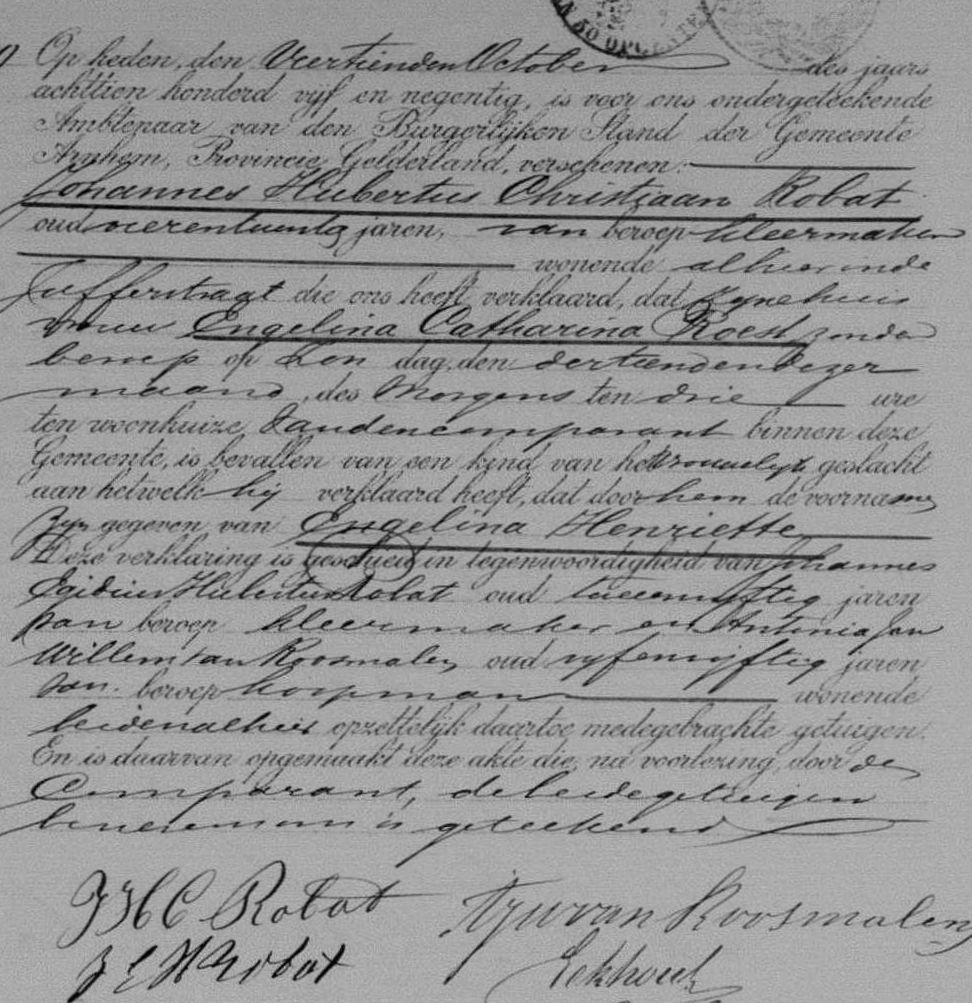 50 OPCENTEN
Op heden, den Veertienden October des jaars
achttien honderd vyf en negentig, is voor ons ondergeteekende
Ambtenaar van den Burgerlijken Stand der Gemeente
Arnhem, Provincie Gelderland, verschenen:
Johannes Hubertus Christiaan Robat
oud vierentwintig jaren, van beroep kleermaker
wonende alhier in de
Jufferstraat die ons heeft verklaard, dat zyne huis
vrouw Engelina Catharina Roest zonder
beroep op Zon dag, den dertienden dezer
maand, des Morgens ten drie ure
ten woonhuize van den comparant binnen deze
Gemeente, is bevallen van een kind van het vrouwelyk geslacht
aan hetwelk hij verklaard heeft, dat door hem de voornamen
zyn gegeven van Engelina Henriette
Deze verklaring is geschied in tegenwoordigheid van Johannes
Egidius Hubertus Robat oud tweeenvyftig jaren
van beroep kleermaker en Antonie Jan
Willem van Roosmalen oud vyfenvyftig jaren
van beroep koopman wonende
beiden alhier opzettelijk daartoe medegebrachte getuigen.
En is daarvan opgemaakt deze akte die, na voorlezing, door de
Comparant, de beide getuigen
benevens ons is geteekend
JHC Robat
AJW van Roosmalen
JEH Robat